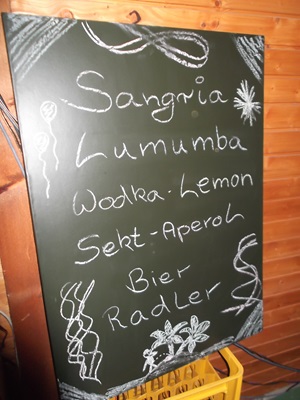 Sangria
Lumumba
Wodka-Lemon
Sekt-Aperol
Bier
Radler